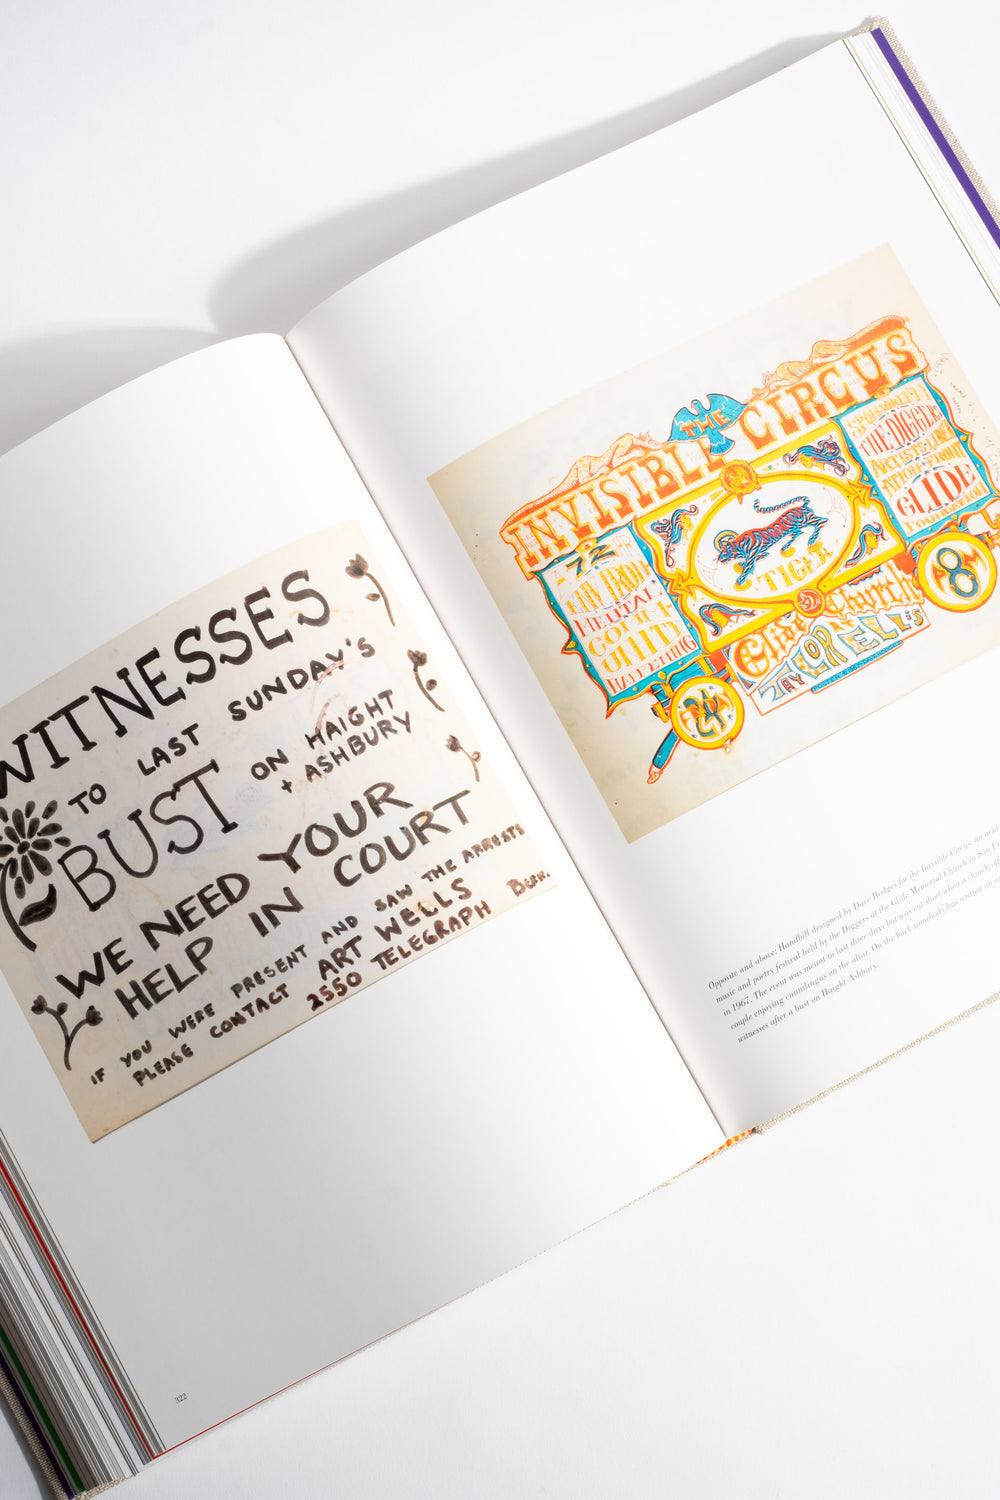 WITNESSES
TO LAST SUNDAY'S
BUST ON HAIGHT
+ ASHBURY
WE NEED YOUR
HELP IN COURT
IF YOU WERE PRESENT AND SAW THE ARRESTS
PLEASE CONTACT ART WELLS
2550 TELEGRAPH BERK.
322
THE
INVISIBLE CIRCUS
A 72
HOUR
ENVIRON
MENTAL
COMM-
UNITY
HAPPENING
TIGER
SPONSORED BY
THE DIGGERS
ARTISTS LIB
GLIDE
FOUNDATION
24
8
Glide Church
TAYLOR ELLIS
Opposite and above: Handbill designed by Dave Hodges for the Invisible Circus, an
music and poetry festival held by the Diggers at the Glide Memorial Church in San
in 1967. The event was meant to last three days but was cut short when a church
couple enjoying cunnilingus on the altar. On the back somebody has written an
witnesses after a bust on Haight-Ashbury.